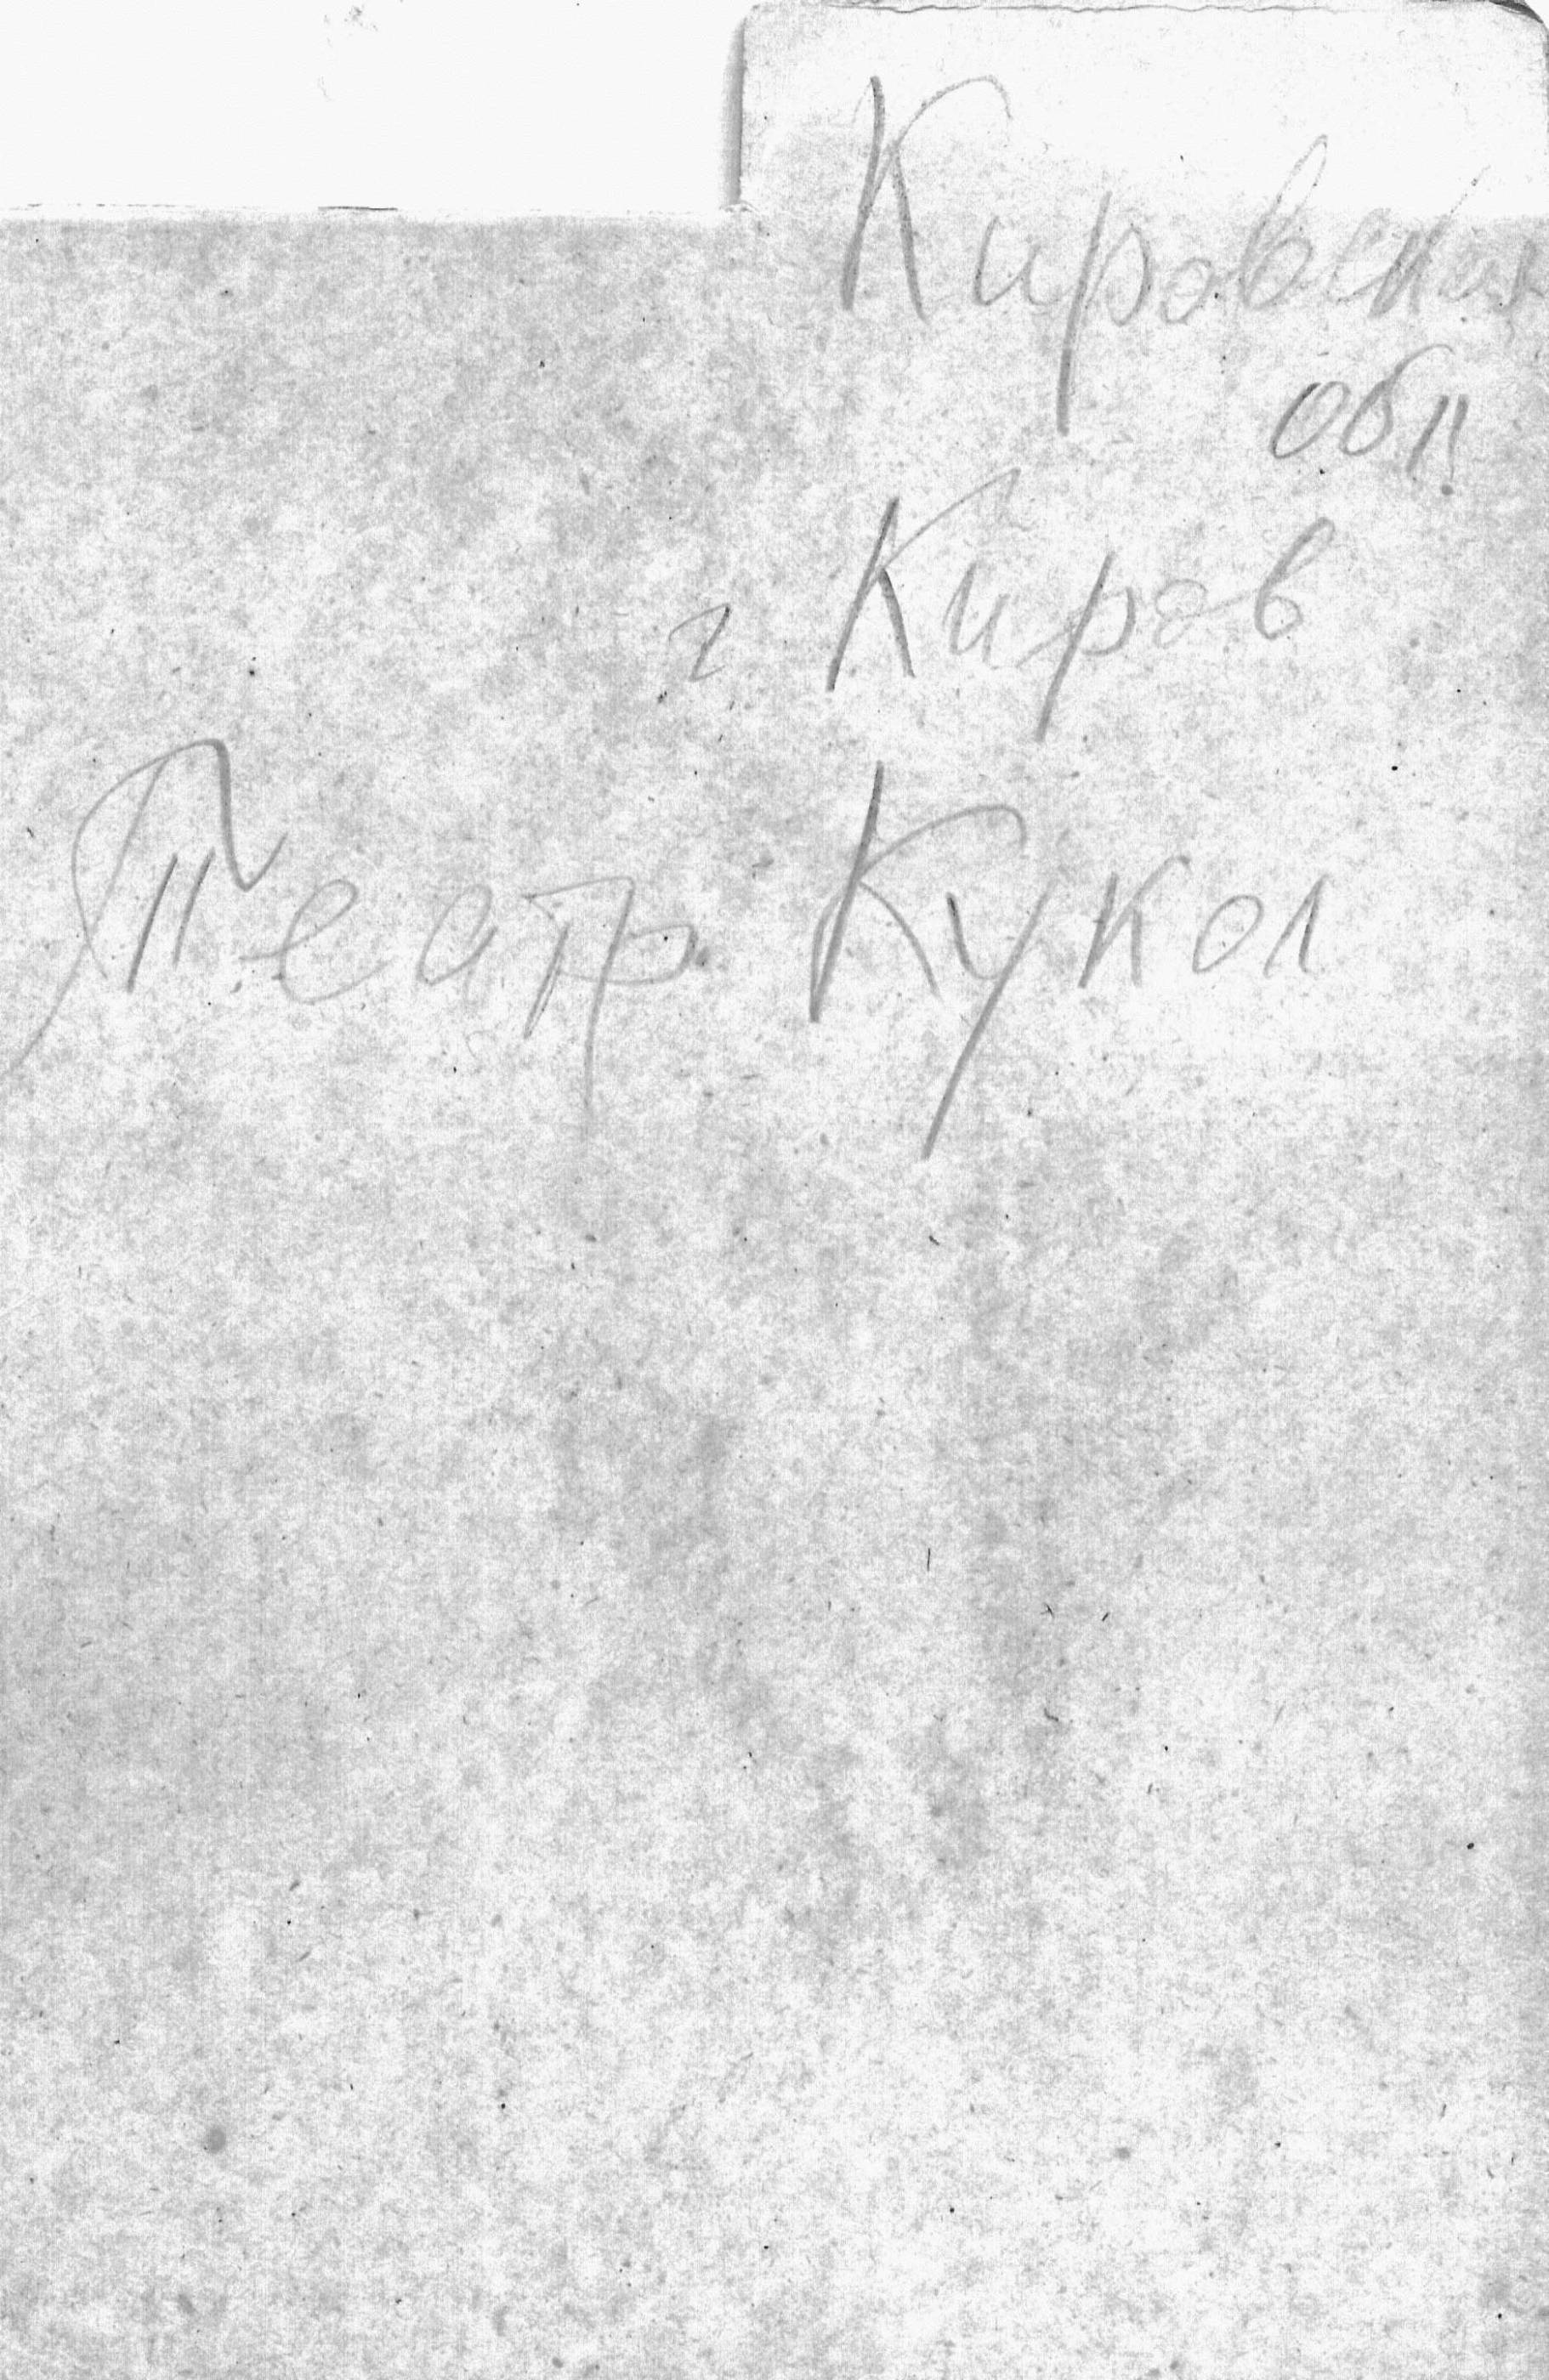 Кировская
обл.
г Киров
Театр Кукол